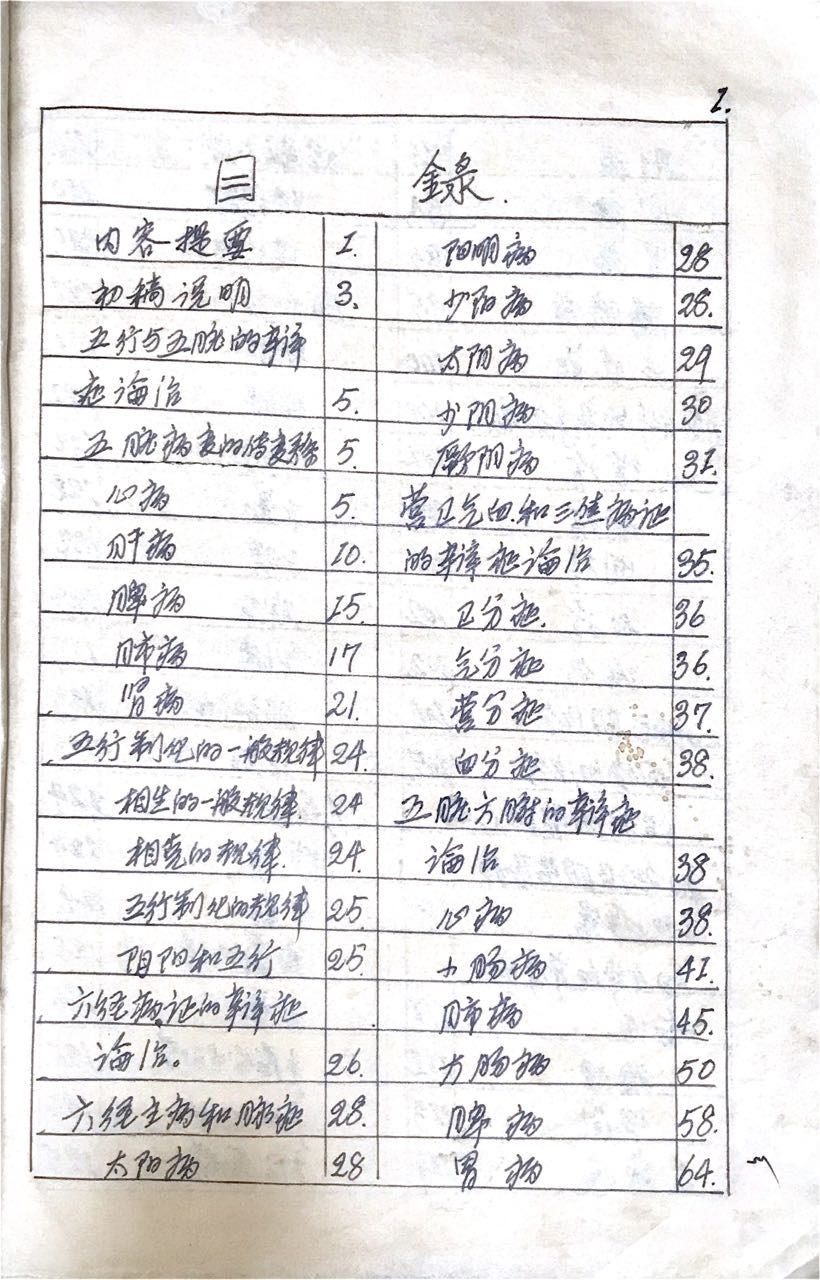 1.
目 錄.
内容提要 1.
初稿说明 3.
五行与五脏的辩译
症论治 5.
五脏病变的传变 5.
心病 5.
肝病 10.
脾病 15.
肺病 17
肾病 21.
五行制化的一般规律 24.
相生的一般规律. 24
相克的规律. 24.
五行制化的规律 25.
阴阳和五行 25.
六经病证的辩译症
论治。 26.
六经主病和脉症 28.
太阳病 28
阳明病 28
少阳病 28.
太阴病 29
少阴病 30
厥阴病 31.
营卫气血.和三焦病证
的辩译症论治 35.
卫分症. 36
气分症 36.
营分症 37.
血分症 38.
五脏六腑的辩译症
论治 38
心病 38.
小肠病 41.
肺病 45.
大肠病 50
脾病 58.
胃病 64.